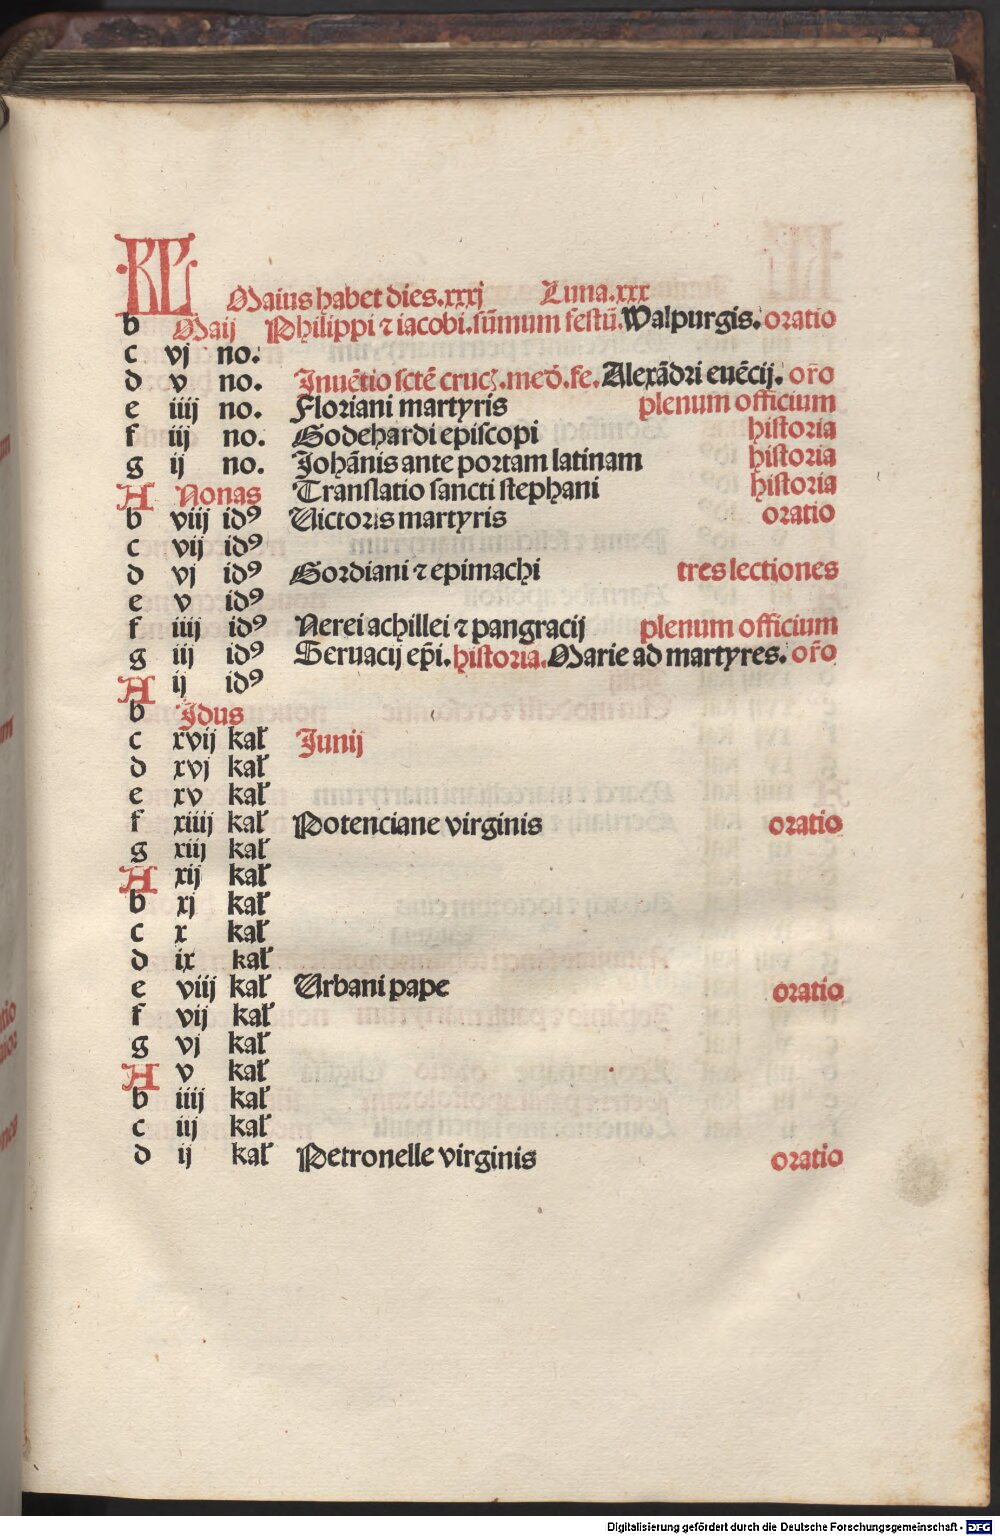 KL Maius habet dies.xxxj Luna.xxx
b Maij Philippi ⁊ iacobi.sūmum festū.Walpurgis.oratio
c vj no.
d v no. Inuētio sctē crucꝫ.med̄.fe.Alexādri euēcij. or̄o
e iiij no. Floriani martyris plenum officium
f iij no. Godehardi episcopi historia
g ij no. Johānis ante portam latinam historia
A Nonas Translatio sancti stephani historia
b viij idꝰ Uictoris martyris oratio
c vij idꝰ
d vj idꝰ Gordiani ⁊ epimachi tres lectiones
e v idꝰ
f iiij idꝰ Nerei achillei ⁊ pangracij plenum officium
g iij idꝰ Seruacij ep̄i.historia.Marie ad martyres. or̄o
A ij idꝰ
b Idus
c xvij kał Junij
d xvj kał
e xv kał
f xiiij kał Potenciane virginis oratio
g xiij kał
A xij kał
b xj kał
c x kał
d ix kał
e viij kał Urbani pape oratio
f vij kał
g vj kał
A v kał
b iiij kał
c iij kał
d ij kał Petronelle virginis oratio
Digitalisierung gefördert durch die Deutsche Forschungsgemeinschaft - DFG